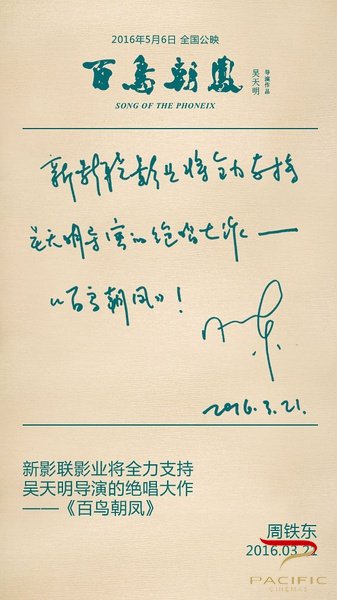 2016年5月6日 全国公映
百鸟朝凤
吴天明
导演作品
SONG OF THE PHONEIX
新影联影业将全力支持
吴天明导演的绝唱大作——
《百鸟朝凤》！
2016.3.21.
新影联影业将全力支持
吴天明导演的绝唱大作
——《百鸟朝凤》
周铁东
2016.03.21
PACIFIC
CINEMAS